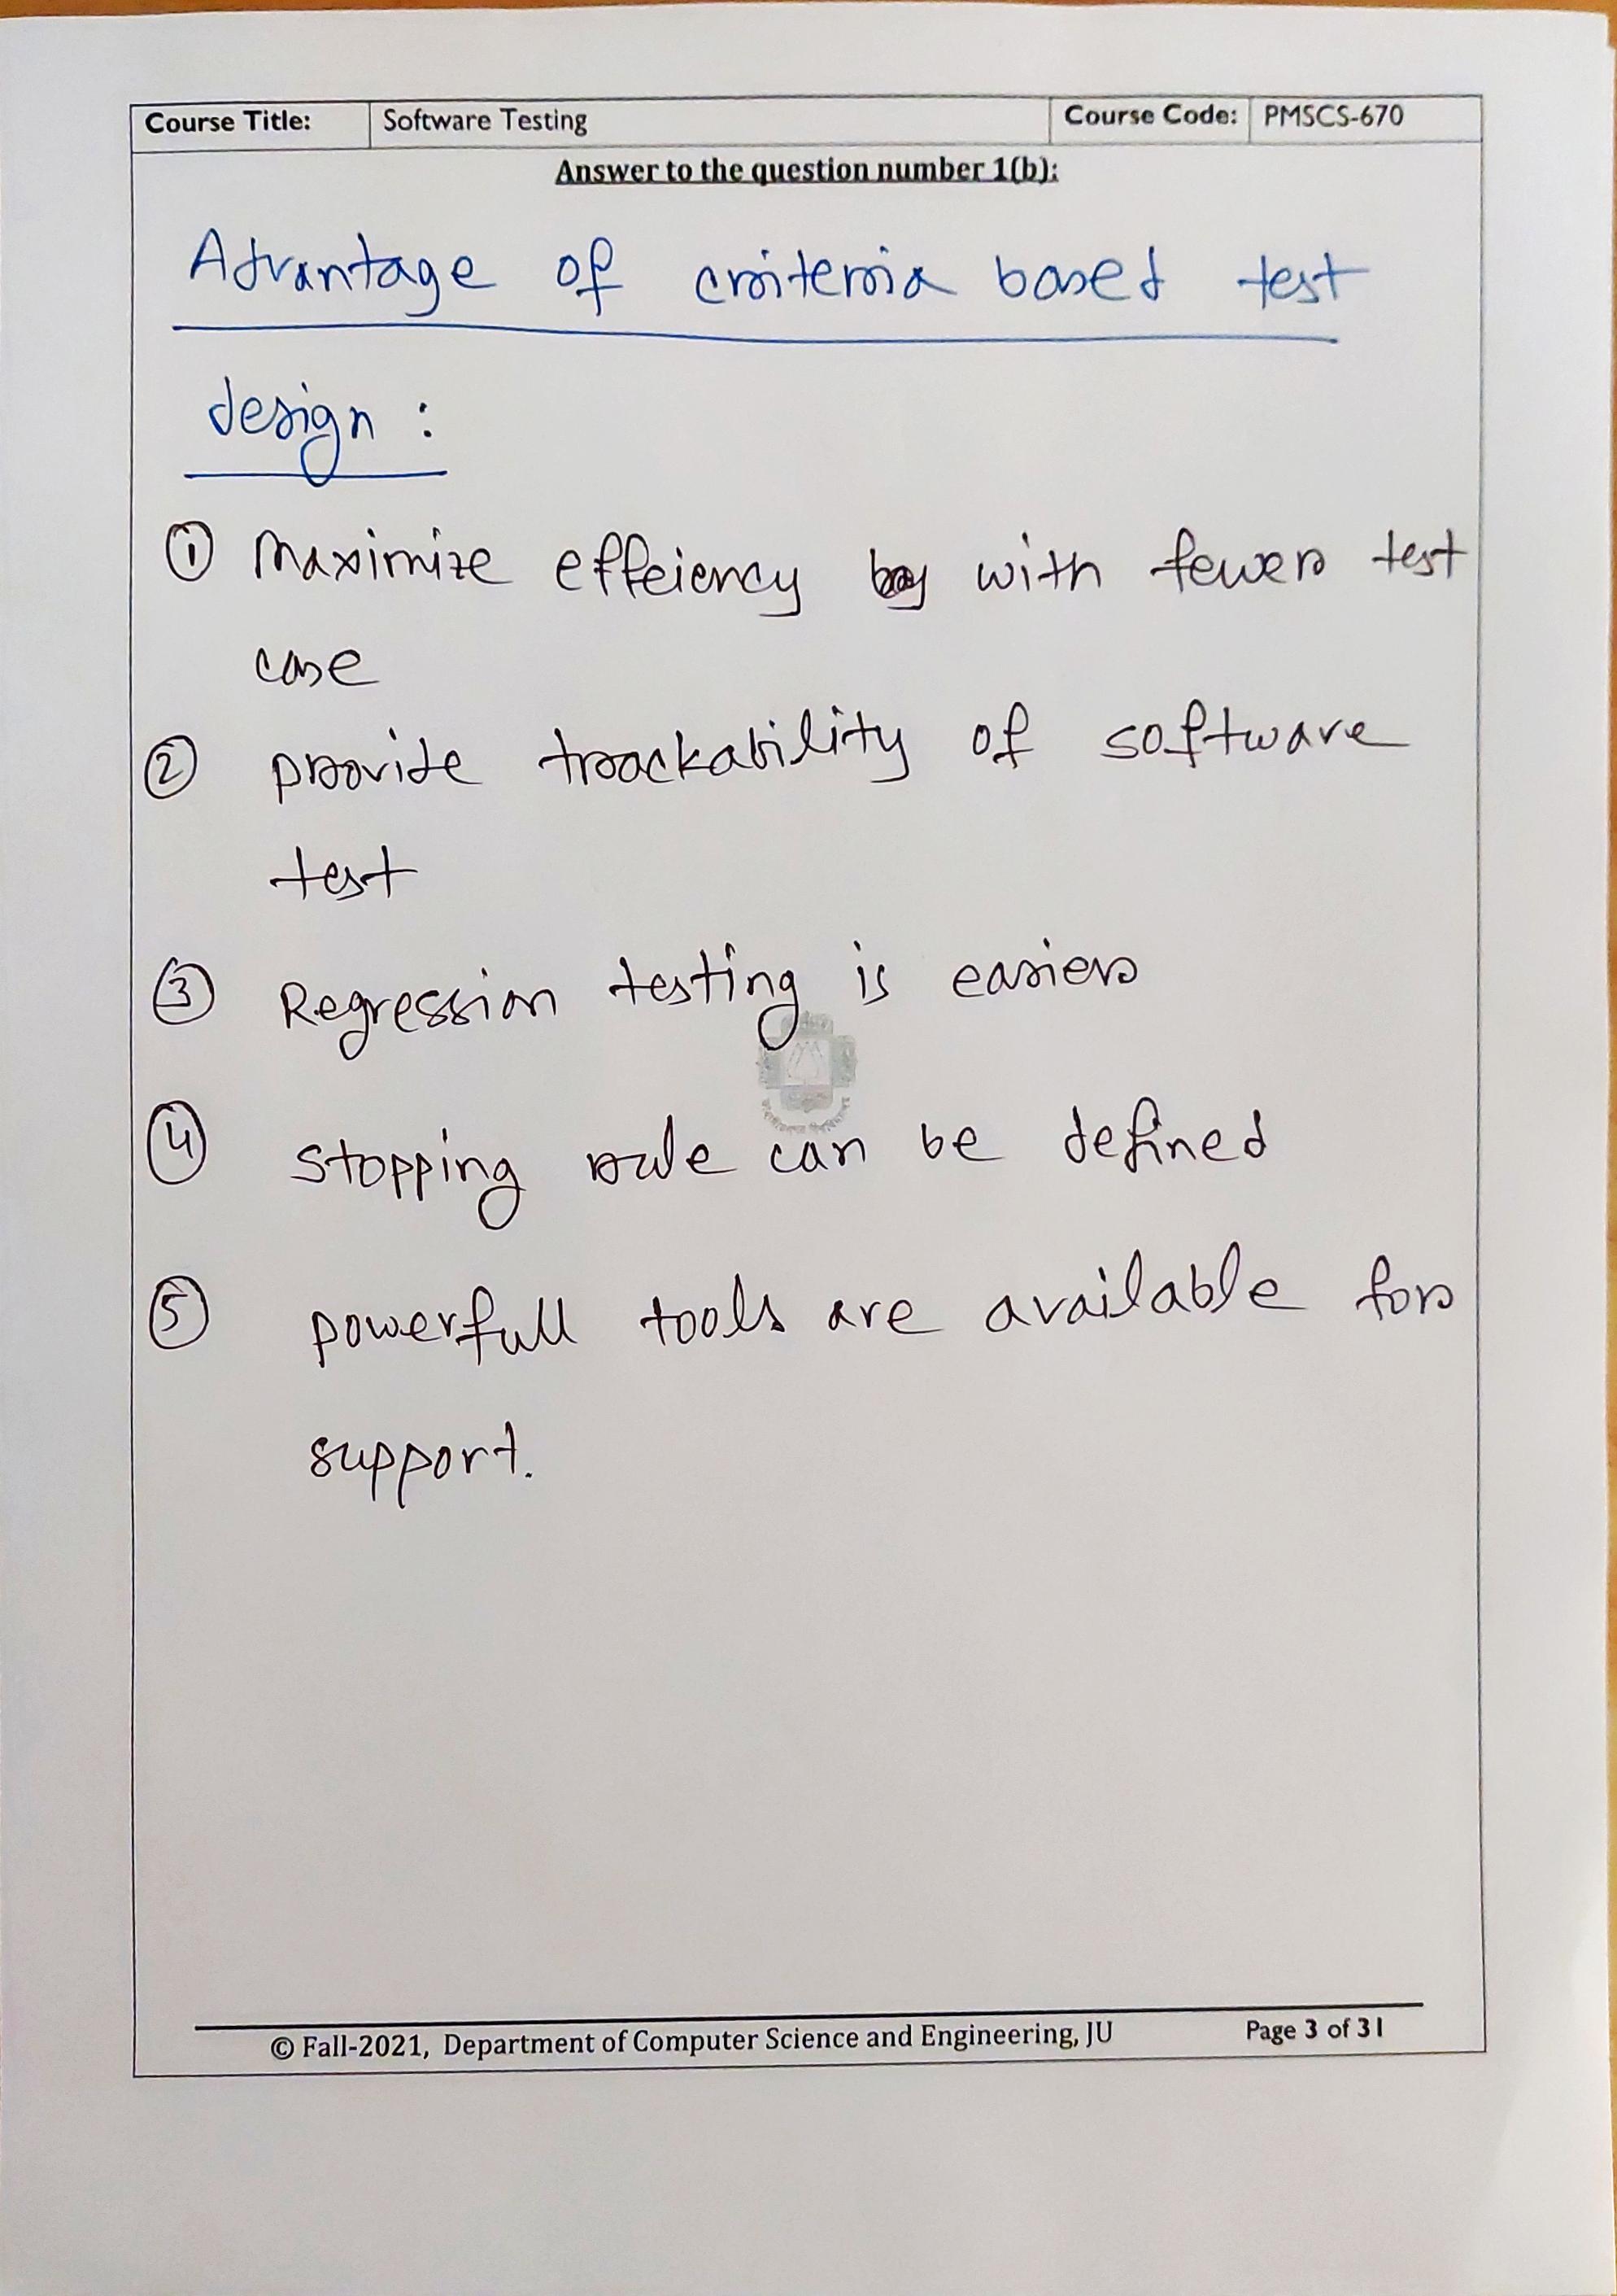 Course Title: Software Testing Course Code: PMSCS-670
Answer to the question number 1(b):
Advantage of criteria based test
design :
① Maximize effeiency with fewer test
case
② provide trackability of software
test
③ Regression testing is easier
④ stopping rule can be defined
⑤ powerfull tools are available for
support.
© Fall-2021, Department of Computer Science and Engineering, JU Page 3 of 31